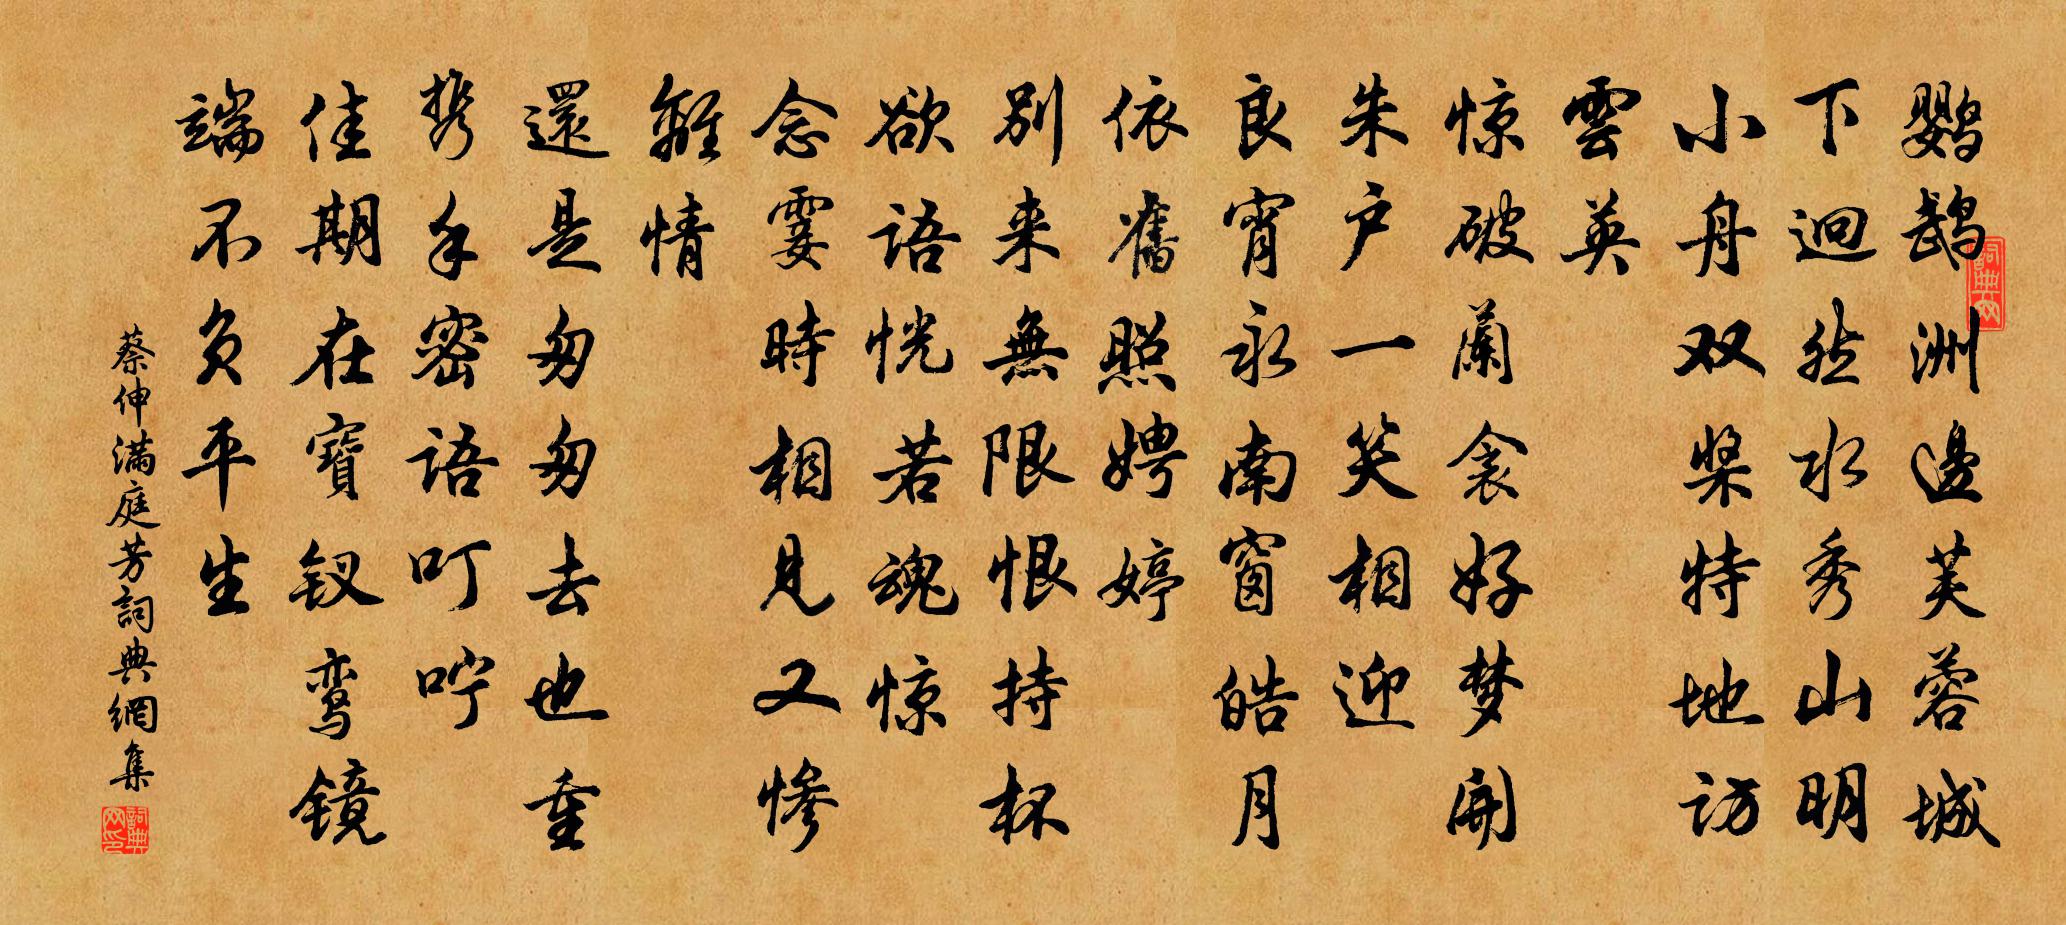 鹦鹉洲邊芙蓉城
下迴然水秀山明
小舟双桨特地访
雲英
惊破蘭衾好梦開
朱户一笑相迎
良宵永南窗皓月
依舊照娉婷
别来無限恨持杯
欲语恍若魂惊
念霎時相见又惨
離情
還是匆匆去也重
携手密语叮咛
佳期在寶钗鸾镜
端不负平生
蔡伸满庭芳詞典網集
詞典网
詞典网印